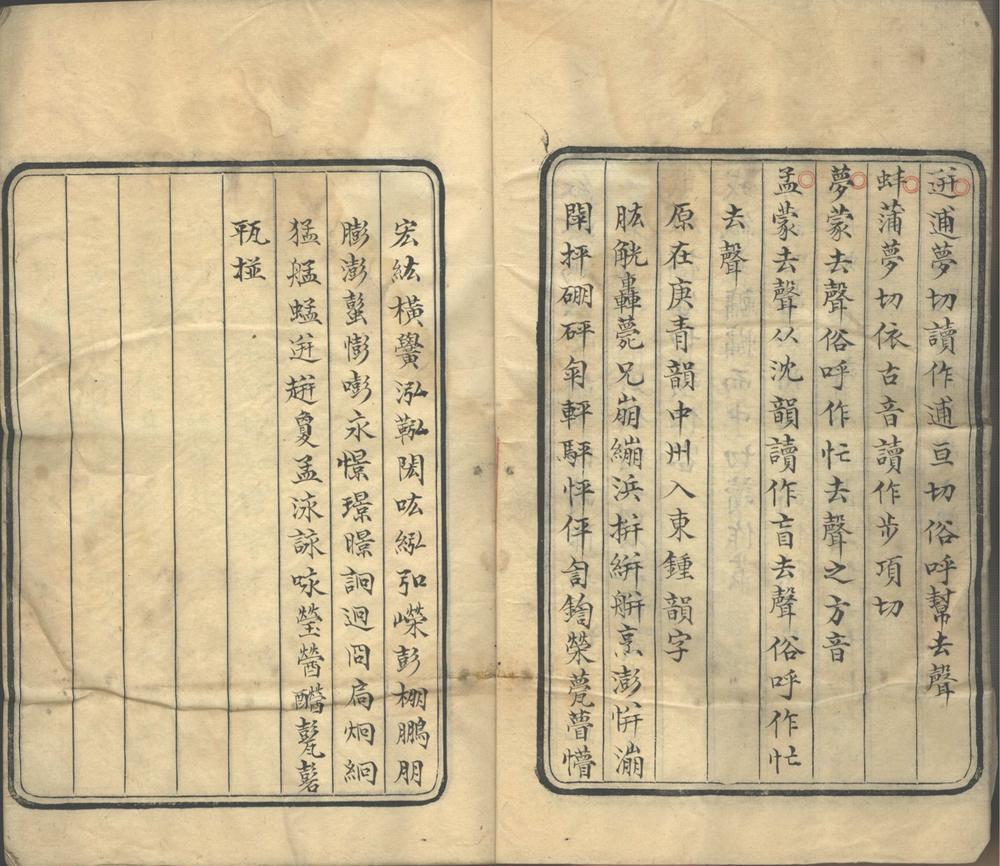 逬逋夢切讀作逋亘切俗呼幫去聲
蚌蒲夢切依古音讀作步項切
夢蒙去聲俗呼作忙去聲之方音
孟蒙去聲从沈韻讀作盲去聲俗呼作忙
去聲
原在庚青韻中州入東鍾韻字
肱觥轟薨兄崩繃浜拼絣艵烹澎恲漰
閛抨硼砰匉軯駍怦伻訇鍧榮甍瞢懵
宏紘橫黌泓鞃閎吰紭弘嶸彭棚鵬朋
膨澎蟚憉嘭永憬璟暻詗迥冏扃炯絅
猛艋蜢逬趟敻孟泳詠咏瑩醟甏
瓶掽